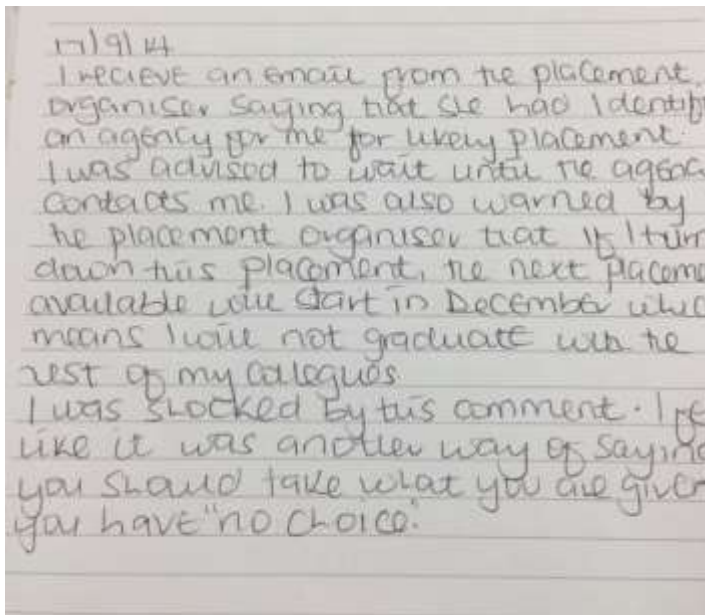 17/9/14
I recieve an email from the placement
organiser saying that she had identif
an agency for me for likely placement.
I was advised to wait until the agenc
contacts me. I was also warned by
the placement organiser that if I turn
down this placement, the next placeme
available will start in December whic
means I will not graduate with the
rest of my collegues
I was shocked by this comment. I fe
like it was another way of saying
you should take what you are given
you have "no choice".